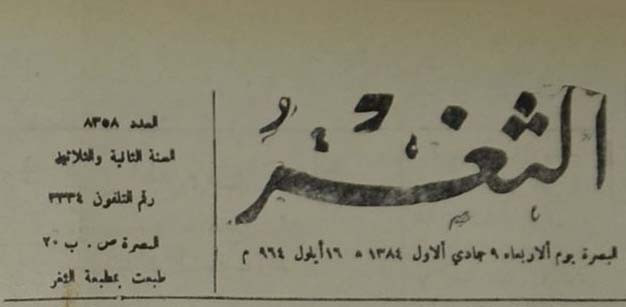 الثغر
البصرة يوم الاربعاء ٩ جمادي الاول ١٣٨٤ ه ١٦ أيلول ٩٦٤ م
العدد ٨٣٥٨
السنة الثانية والثلاثين
رقم التلفون ٣٣٣٤
البصرة ص . ب ٢٠
طبعت بمطبعة الثغر